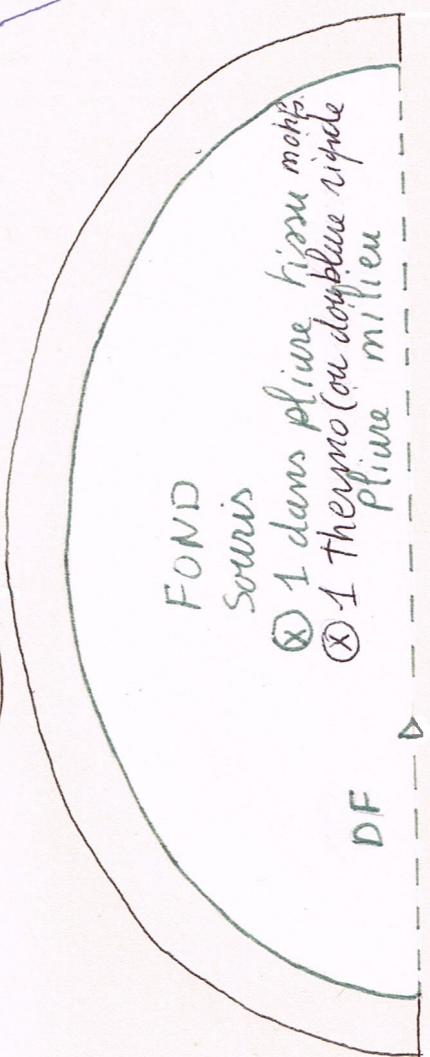 FOND
Souris
ⓧ 1 dans pliure tissu motifs.
ⓧ 1 thermo (ou doublure rigide
pliure milieu
DF